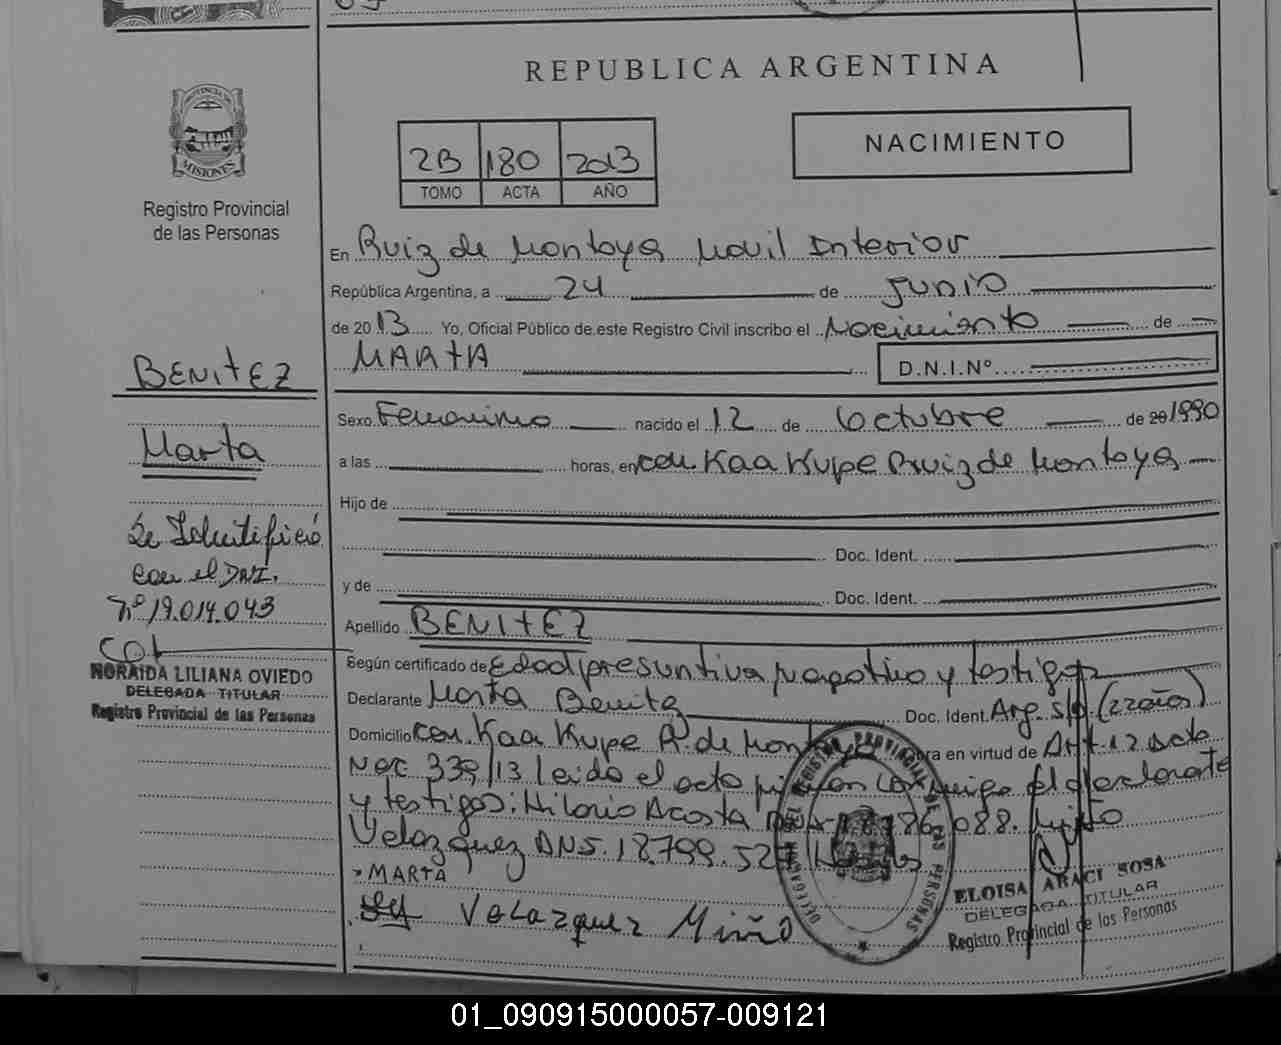 REPUBLICA ARGENTINA
PROVINCIA DE
MISIONES
Registro Provincial
de las Personas
2B 180 2013
TOMO ACTA AÑO
NACIMIENTO
En Ruiz de Montoya Movil Interior
República Argentina, a 24 de Junio
de 2013 Yo, Oficial Público de este Registro Civil inscribo el Nacimiento de
MARTA D.N.I.Nº
BENITEZ
Marta
Se Identificó
con el DNI.
Nº 19.014.043
NORAIDA LILIANA OVIEDO
DELEGADA TITULAR
Registro Provincial de las Personas
Sexo Femenino nacido el 12 de Octubre de 20 1990
a las horas, en com. Kaa Kupe Ruiz de Montoya
Hijo de
Doc. Ident.
y de Doc. Ident.
Apellido BENITEZ
Según certificado de Edad presuntiva negativo y testigos
Declarante Marta Benitez Doc. Ident. Arg. s/d. (22 años)
Domicilio com. Kaa Kupe R. de Montoya Obra en virtud de Art. 12 Dcto
Nac 339/13 leido el acta firman conmigo el declarante
y testigos: Hilario Acosta 086.088.
Velazquez DNI. 18.799.52
MARTA
Velazquez Miño
DELEGACION DEL REGISTRO PROVINCIAL DE LAS PERSONAS
ELOISA ARACI SOSA
DELEGADA TITULAR
Registro Provincial de las Personas
01_090915000057-009121